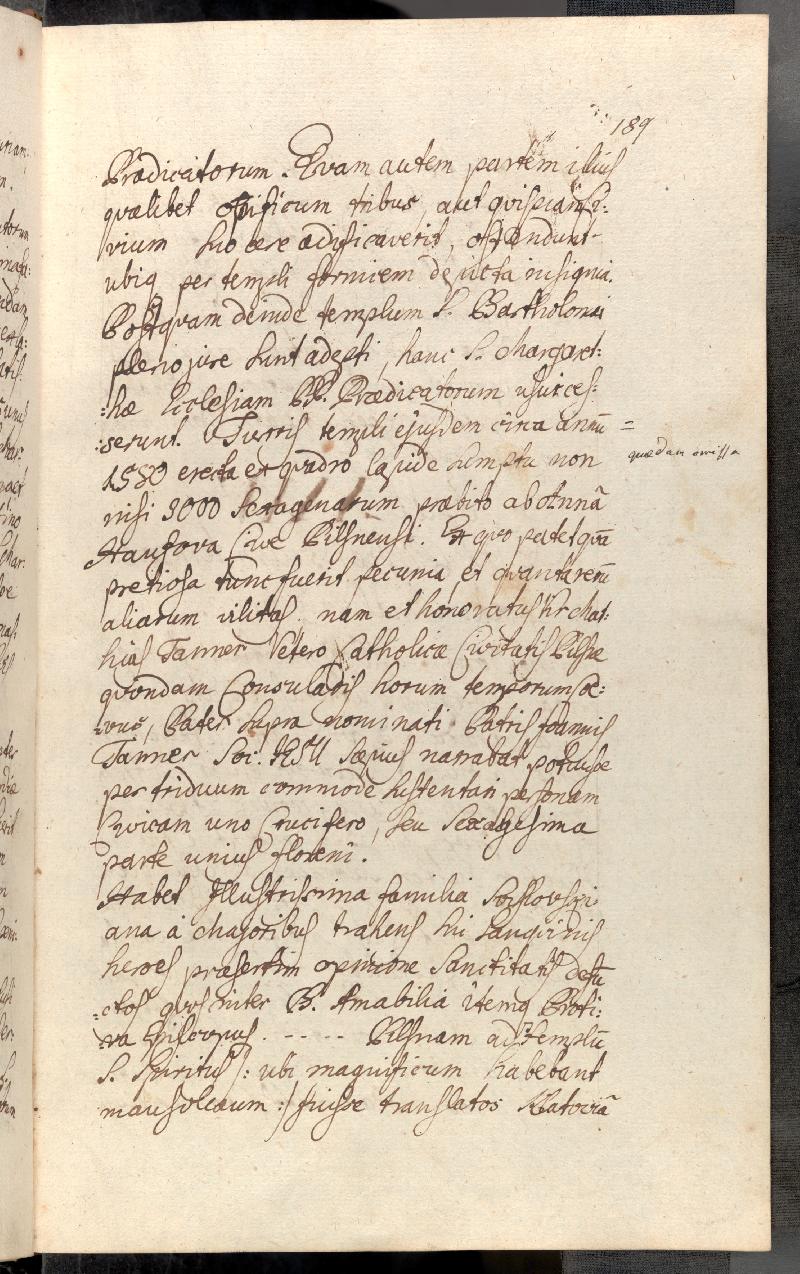 189
Prædicatorum. Qvam autem partem illius
qvælibet opificum tribus, aut qvispiam
vium suo ære ædificaverit, ostendunt
ubiq per templi fornicem dejecta insignia.
Postqvam deinde templum S. Bartholomæi
pleno jure sunt adepti, hanc S. Margaret:
:hæ Ecclesiam PP. Prædicatorum usui ces:
:serunt. Turris templi ejusdem circa annū =
quædam omissa
1580 erecta ex qvadro lapide sumptu non
nisi 9000 Sexagenarum præbito ab Annâ
Civæ Pilsnensi. Ex qvo patet qvā
pretiosa tunc fuerit pecunia et qvanta rerū
aliarum vilitas. nam et honoratus Vir Mat:
hias Tanner Vetero Catholicæ Civitatis Pilsnæ
qvondam Consularis horum temporum
Pater supra nominati Patris Joannis
Tanner Soc. JESU sæpius narrabat potuisse
per triduum commode sustentari personam
Civicam uno Crucifero, seu Sexagesima
parte unius floreni.
Habet Illustrissima familia
ana à Majoribus trahens hui sangvinis
heroes præsertim opinione Sanctitatis defū
:ctos qvos inter B. Amabilia itemq Proti:
:va Episcopus. ----- Pilsnam ad templū
S. Spiritus /: ubi magnificum habebant
mausolæum :/ fuisse translatos Klatoviâ